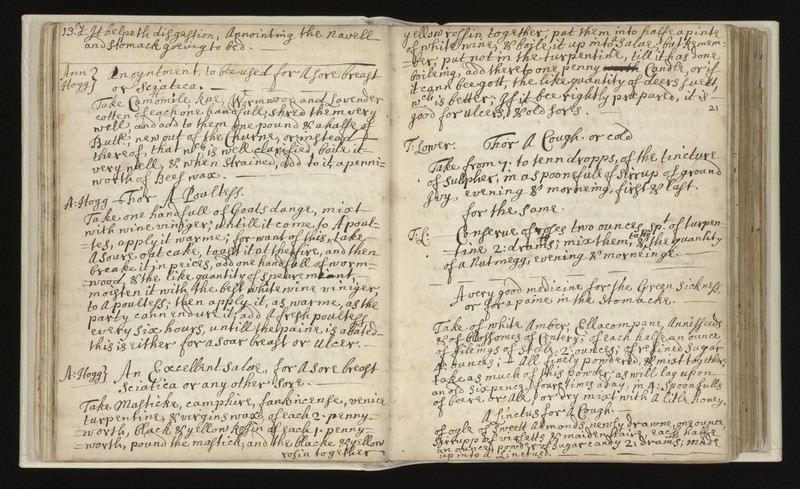 13: It helpeth disgastion, Annointing the Navell
and stomack goeing to bed.
Ann Hogg} An oyntment, to be used for A sore breast
or Sciatica.
Take Camomile, Rue, Wormwood and Lavender
cotten of each one handfull, shred them very
well, and add to them one pound & a halfe of
Butter, new out of the Churne, or instead
thereof, that wch is well clarified, boile it
very well, & when strained, add to it, a penni=
=worth of Beef wax.
A: Hogg For A Poultess.
Take one handfull of Goats dange, mixt
with wine viniger, untill it come to A poult=
=tes, apply it warme; for want of this, take
A soure oat cake, toast it at the fire, and then
breake it in peeces, add one handfull of worm=
=wood, & the like quantity of spearemeant,
moisten it with the best white wine viniger,
to A poultess; then apply it, as warme, as the
party cann endure it; add A fresh poultess
every six hours, untill the paine is abated
this is either for a soar breast or ulcer.
A: Hogg} An Excellent salve, for A sore breast
Sciatica or any other sore.
Take Mastick, camphire, fankincense, venice
turpentine, & virgins wax, of each 2: penny=
=worth, black & yellow Rossin of each 1: penny=
=worth, pound the mastick, and the blacke & yellow
rosin together
yellow rossin together; put them into halfe a pinte
of white wine, & boile it up into Salve; but remem=
=ber, put not in the turpentine, till it has done
boileing, add thereto one penny Candle, or if
it cann bee gott, the like quantity of deers suett,
wch is better; If it bee rightly prepared, it is
good for ulcers, & old sores.
21
T: Lower. For A Cough or cold
Take from 7: to tenn dropps, of the tincture
of Sulpher, in a spoonefull of Sirrup of ground
Ivy, evening & morneing, first & last.
for the same.
T: L: Conserve of roses two ounces, spt. of turpen=
=tine 2: drams; mix them, take the quantity
of a Nutmegg, evening & morneing.
A very good medicine for the Green Sickness
or for a paine in the Stomacke.
Take of white Amber, Ellacompane, Annisseeds
& of blossomes of Centery; of each halfe an ounce
of fileings of Steele 2: ounces; of refined sugar
4: ounces; All finely powdered, & mixt together,
take as much of this powder, as will lay upon
an old Sixpence, four times a day, in 4: Spoonfulls
of beere or Ale, or dry mixt with A litle honey.
A Linctus for A Cough.
of oyle of Sweett Almonds newly drawne, one ounce,
Sirrupp of violetts & maidenhaire, each halfe
an ounce, powder of sugar candy 2: drams; made
up into a Linctus.